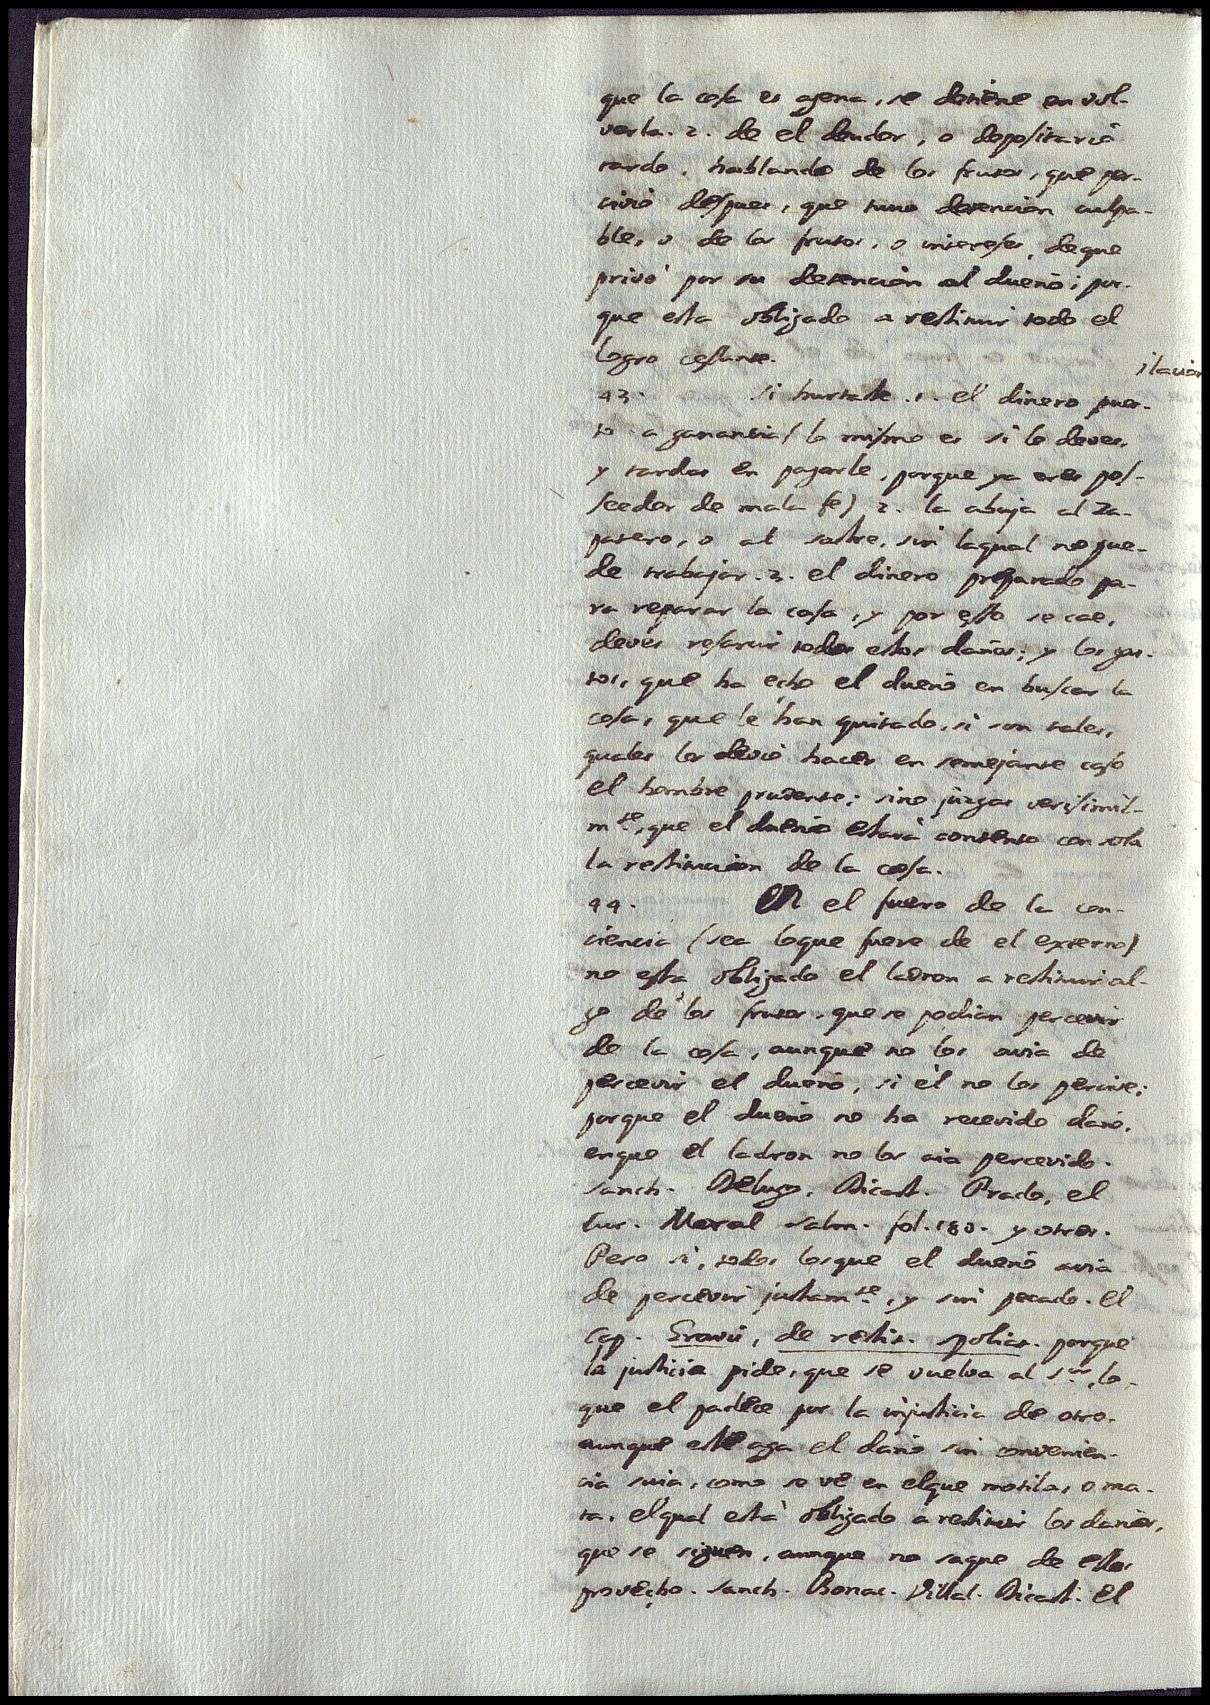 que la cosa es agena, se detiene en vol-
verla. 2. de el deudor, o depositario
tardo, hablando de los frutos, que per-
civio despues, que tuvo detencion culpa-
ble, o de los frutos, o intereses, deque
privó por su detencion al dueño; por-
que esta obligado a restituir todo el
logro cesante.
ilacion
43. si hurtaste .1. el dinero pues-
to a ganancia (lo mismo es si lo deves,
y tardas en pagarle, porque ya eres pos-
seedor de mala fe) 2. la abuja al Za-
patero, o al sastre, sin laqual no pue-
de trabajar. 3. el dinero preparado pa-
ra reparar la casa, y por esso se cae,
deves resarcir todos estos daños; y los gas-
tos, que ha echo el dueño en buscar la
cosa, que le han quitado, si son tales,
quales los devió hacer en semejante caso
el hombre prudente; sino juzgas verisimil-
mte, que el dueño estará contento con sola
la restitucion de la cosa.
44. En el fuero de la con-
ciencia (sea loque fuere de el externo)
no esta obligado el ladron a restituir al-
go de los frutos, que se podian percevir
de la cosa, aunque no los avia de
percevir el dueño, si él no los percive;
porque el dueño no ha recevido daño,
enque el ladron no los aia percevido.
Sanch. Delugo. Dicast. Prado, el
Cur. Moral Salm. fol. 180. y otros.
Pero si, todos losque el dueño avia
de percevir justamte, y sin pecado. El
Cap. Gravis, de restit. spoliat. porque
la justicia pide, que se vuelva al Sor, lo
que el padece por la injusticia de otro.
aunque este aga el daño sin convenien-
cia suia, como se vé en elque motila, o ma-
ta, elqual está obligado a restituir los daños,
que se siguen, aunque no saque de ellos
provecho. Sanch. Bonac. Villal. Dicast. El